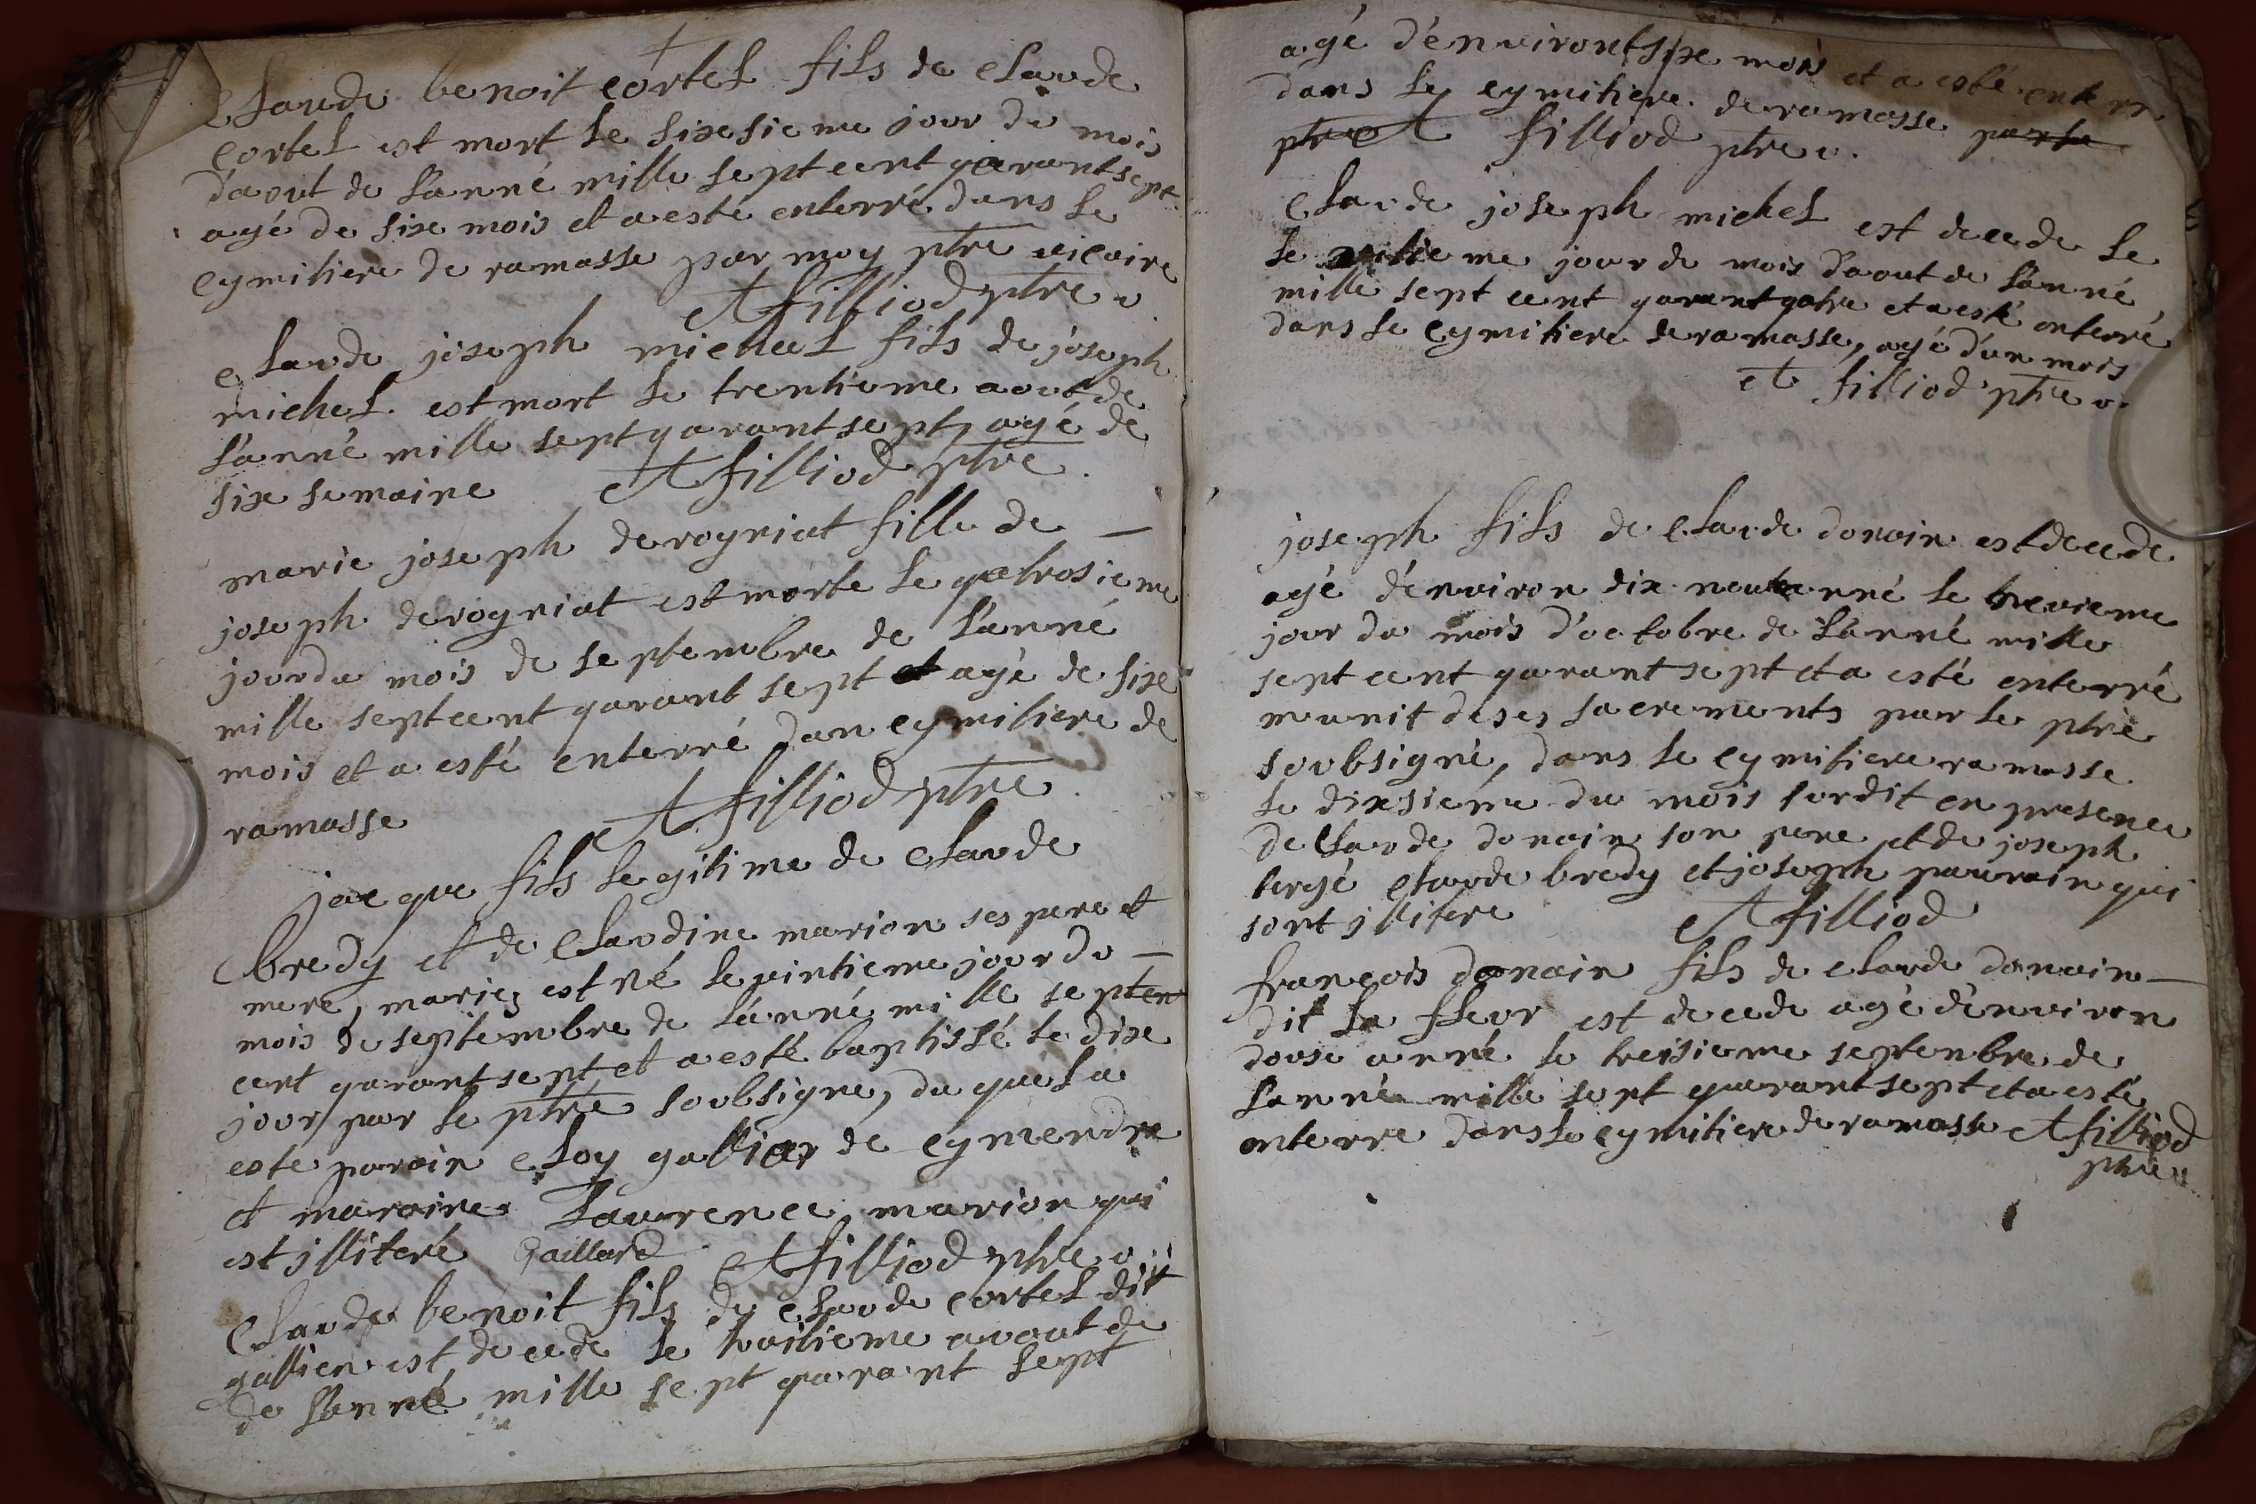 Claude benoit cortel fils de claude
cortel est mort le sixsieme jour du mois
d'aout de l'anné mille sept cent garant sept
agé de sixe mois et a esté enterré dans le
cymitiere de ramasse par moy ptre vicaire
A filliod ptre v
claude joseph michel fils de joseph
michel est mort le trentieme aout de
l'anné mille sept garant sept, agé de
sixe semaine A filliod ptre
marie joseph derogniat fille de —
joseph derogniat est morte le gatrosieme
jour du mois de septembre de l'anné
mille septcent garant sept et agé de sixe
mois et a esté enterré dan cymitiere de
ramasse A filliod ptre
jacque fils legitime de claude
bredy et de claudine marion ses pere et
mere, mariez est né le vintieme jour du —
mois de septembre de l'anné mille septen
cent garant sept et a esté baptissé le dixe
jour par le ptre soubsigne, du quel a
este parain eloy gallier de cymendre
et maraine Laurence marion qui
est illiteré Gaillard A filliod ptre v
Claude benoit fils de claude cortel dit
gallien est decede le huitieme avout de
de l'anné mille sept garant sept
agé d'environt sixe mois et a esté enterr
dans le cymitiere de ramasse par le
ptre A filliod ptre v.
Claude joseph michel est decede le
le jour de mois d'aout de l'anné
mille sept cent garant gatre et a esté enterré
dans le cymitiere de ramasse, agé d'un mois
A filliod ptre v.
joseph fils de claude donain est decede
agé d'environ dix neuf anné le neuvieme
jour du mois d'octobre de l'anné mille
sept cent garant sept et a esté enterré
munit de ses sacrements par le ptre
soubsigné, dans le cymitiere ramasse
le dixsieme du mois surdit en presence
de claude donain son pere et de joseph
tergé claude bredy et joseph pauvrain qui
sont illitere A filliod
françois donain fils de claude donain —
dit la fleur est decede agé d'environ
douse anné le treisieme septenbre de
l'anné mille sept quarant sept et a esté
enterre dans le cymitiere de ramasse A filliod
ptre v